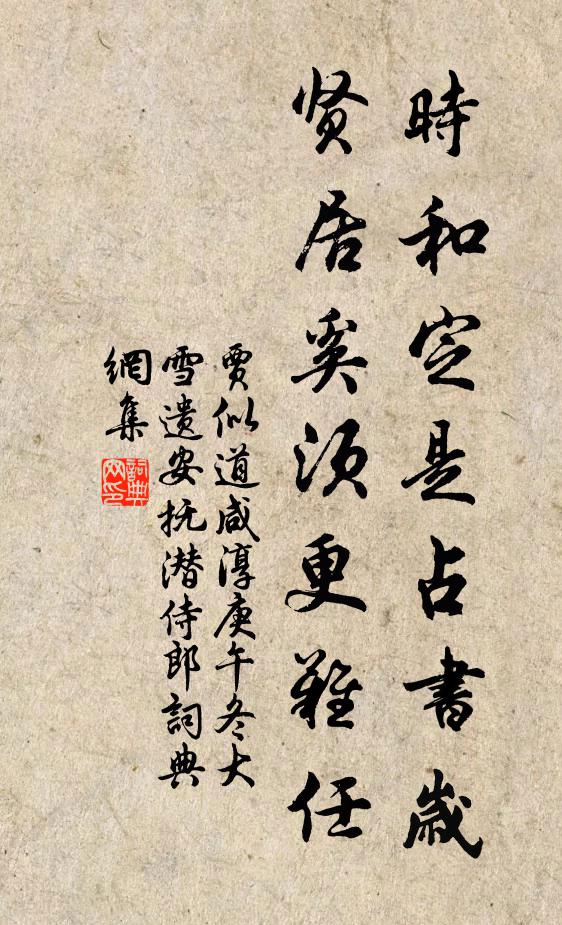 時和定是占書歲
贤居奚须更難任
賈似道咸淳庚午冬大
雪遗安抚潜侍郎詞典
網集
詞典
网印